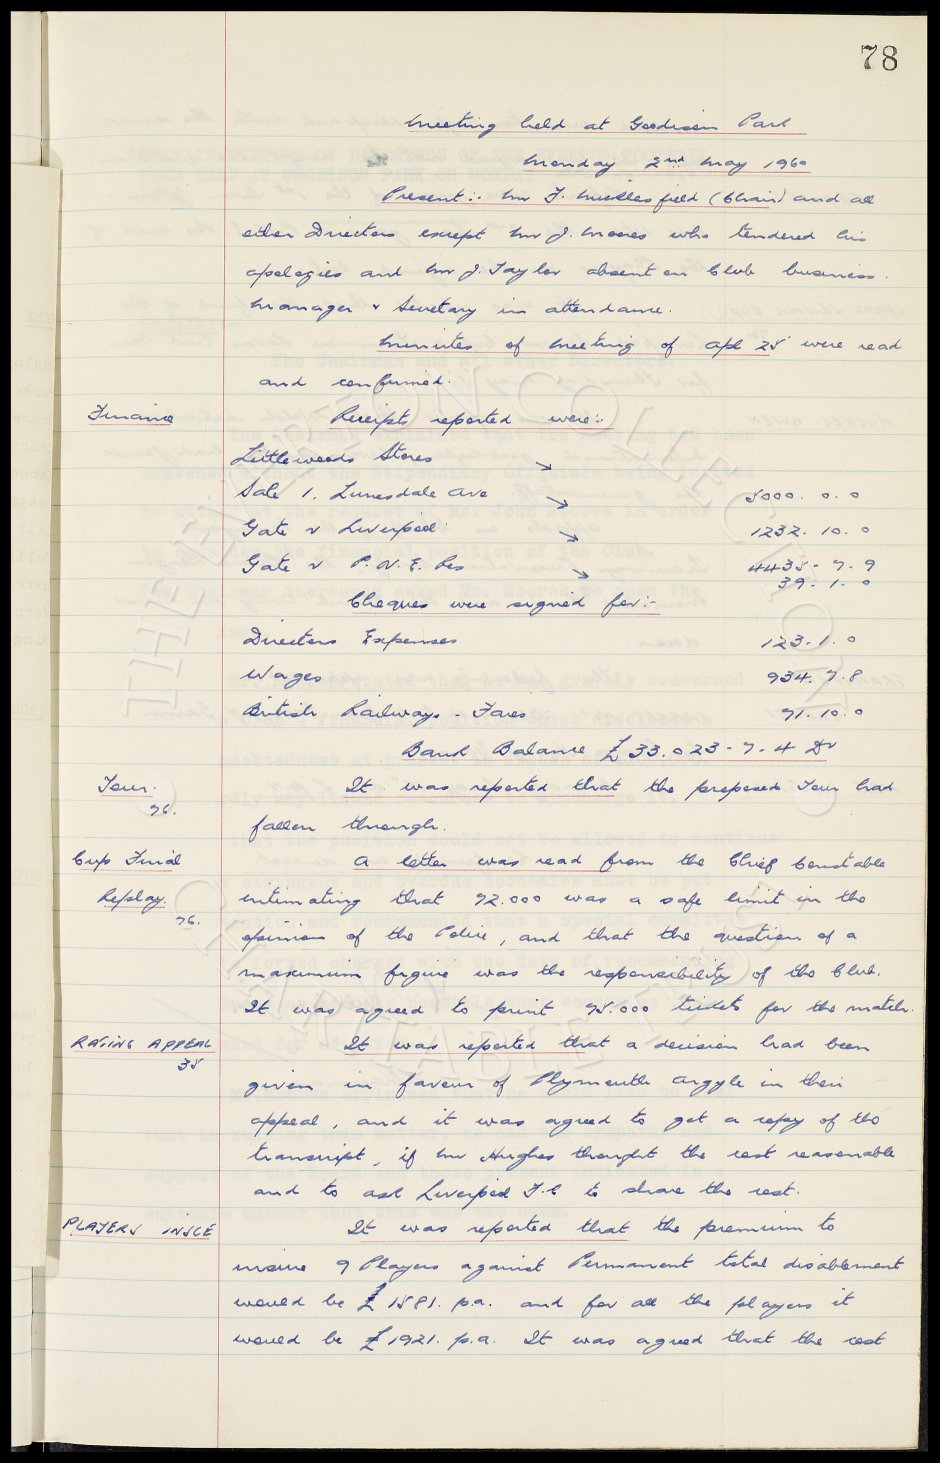 78
Meeting held at Goodison Park
Monday 2nd May 1960
Present:- Mr F. Micklesfield (Chair) and all
other Directors except Mr J. Moores who tendered his
apologies and Mr J. Taylor absent on Club business.
Manager & Secretary in attendance.
Minutes of Meeting of Apl 25 were read
and confirmed.
Finance Receipts reported were:-
Littlewoods Stores
Sale 1. Lunesdale Ave 5000. 0. 0
Gate v Liverpool 1232. 10. 0
Gate v P.N.E. Res 4435. 7. 9
39. 1. 0
Cheques were signed for:-
Directors Expenses 123. 1. 0
Wages 934. 7. 8
British Railways - Fares 71. 10. 0
Bank Balance £33.023-7-4 Dr
Tour. It was reported that the proposed Tour had
76.
fallen through.
Cup Final A letter was read from the Chief Constable
Replay. intimating that 72.000 was a safe limit in the
76.
opinion of the Police, and that the question of a
maximum figure was the responsibility of the Club.
It was agreed to print 75.000 tickets for the match.
RATING APPEAL It was reported that a decision had been
35
given in favour of Plymouth Argyle in their
appeal, and it was agreed to get a copy of the
transcript, if Mr Hughes thought the cost reasonable
and to ask Liverpool F.C to share the cost.
PLAYERS INSCE It was reported that the premium to
insure 9 Players against Permanent total disablement
would be £1581. p.a. and for all the players it
would be £1921. p.a. It was agreed that the cost
THE EVERTON COLLECTION
CHARITABLE TRUST